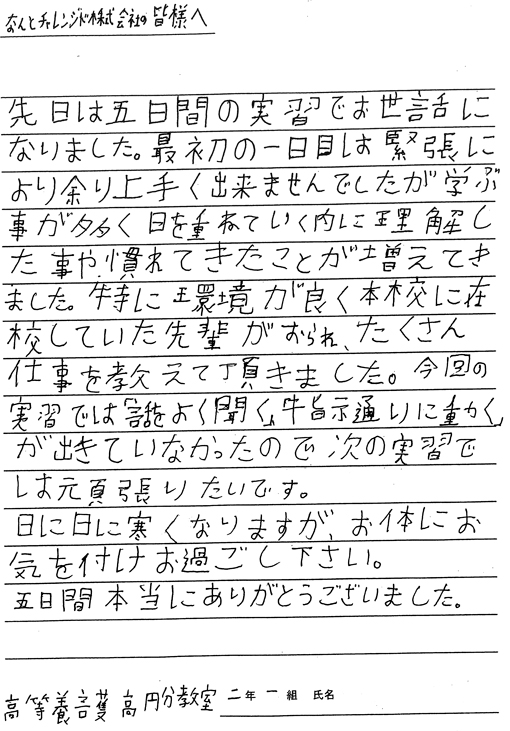 なんとチャレンジド株式会社の皆様へ
先日は五日間の実習でお世話に
なりました。最初の一日目は緊張に
より余り上手く出来ませんでしたが学ぶ
事が多く日を重ねていく内に理解し
た事や慣れてきたことが増えてき
ました。特に環境が良く本校に在
校していた先輩がおられ、たくさん
仕事を教えて頂きました。今回の
実習では「話をよく聞く」「指示通りに動く」
が出きていなかったので次の実習で
は元頁張りたいです。
日に日に寒くなりますが、お体にお
気を付けお過ごし下さい。
五日間本当にありがとうございました。
高等養護高円分教室 二年 一 組 氏名